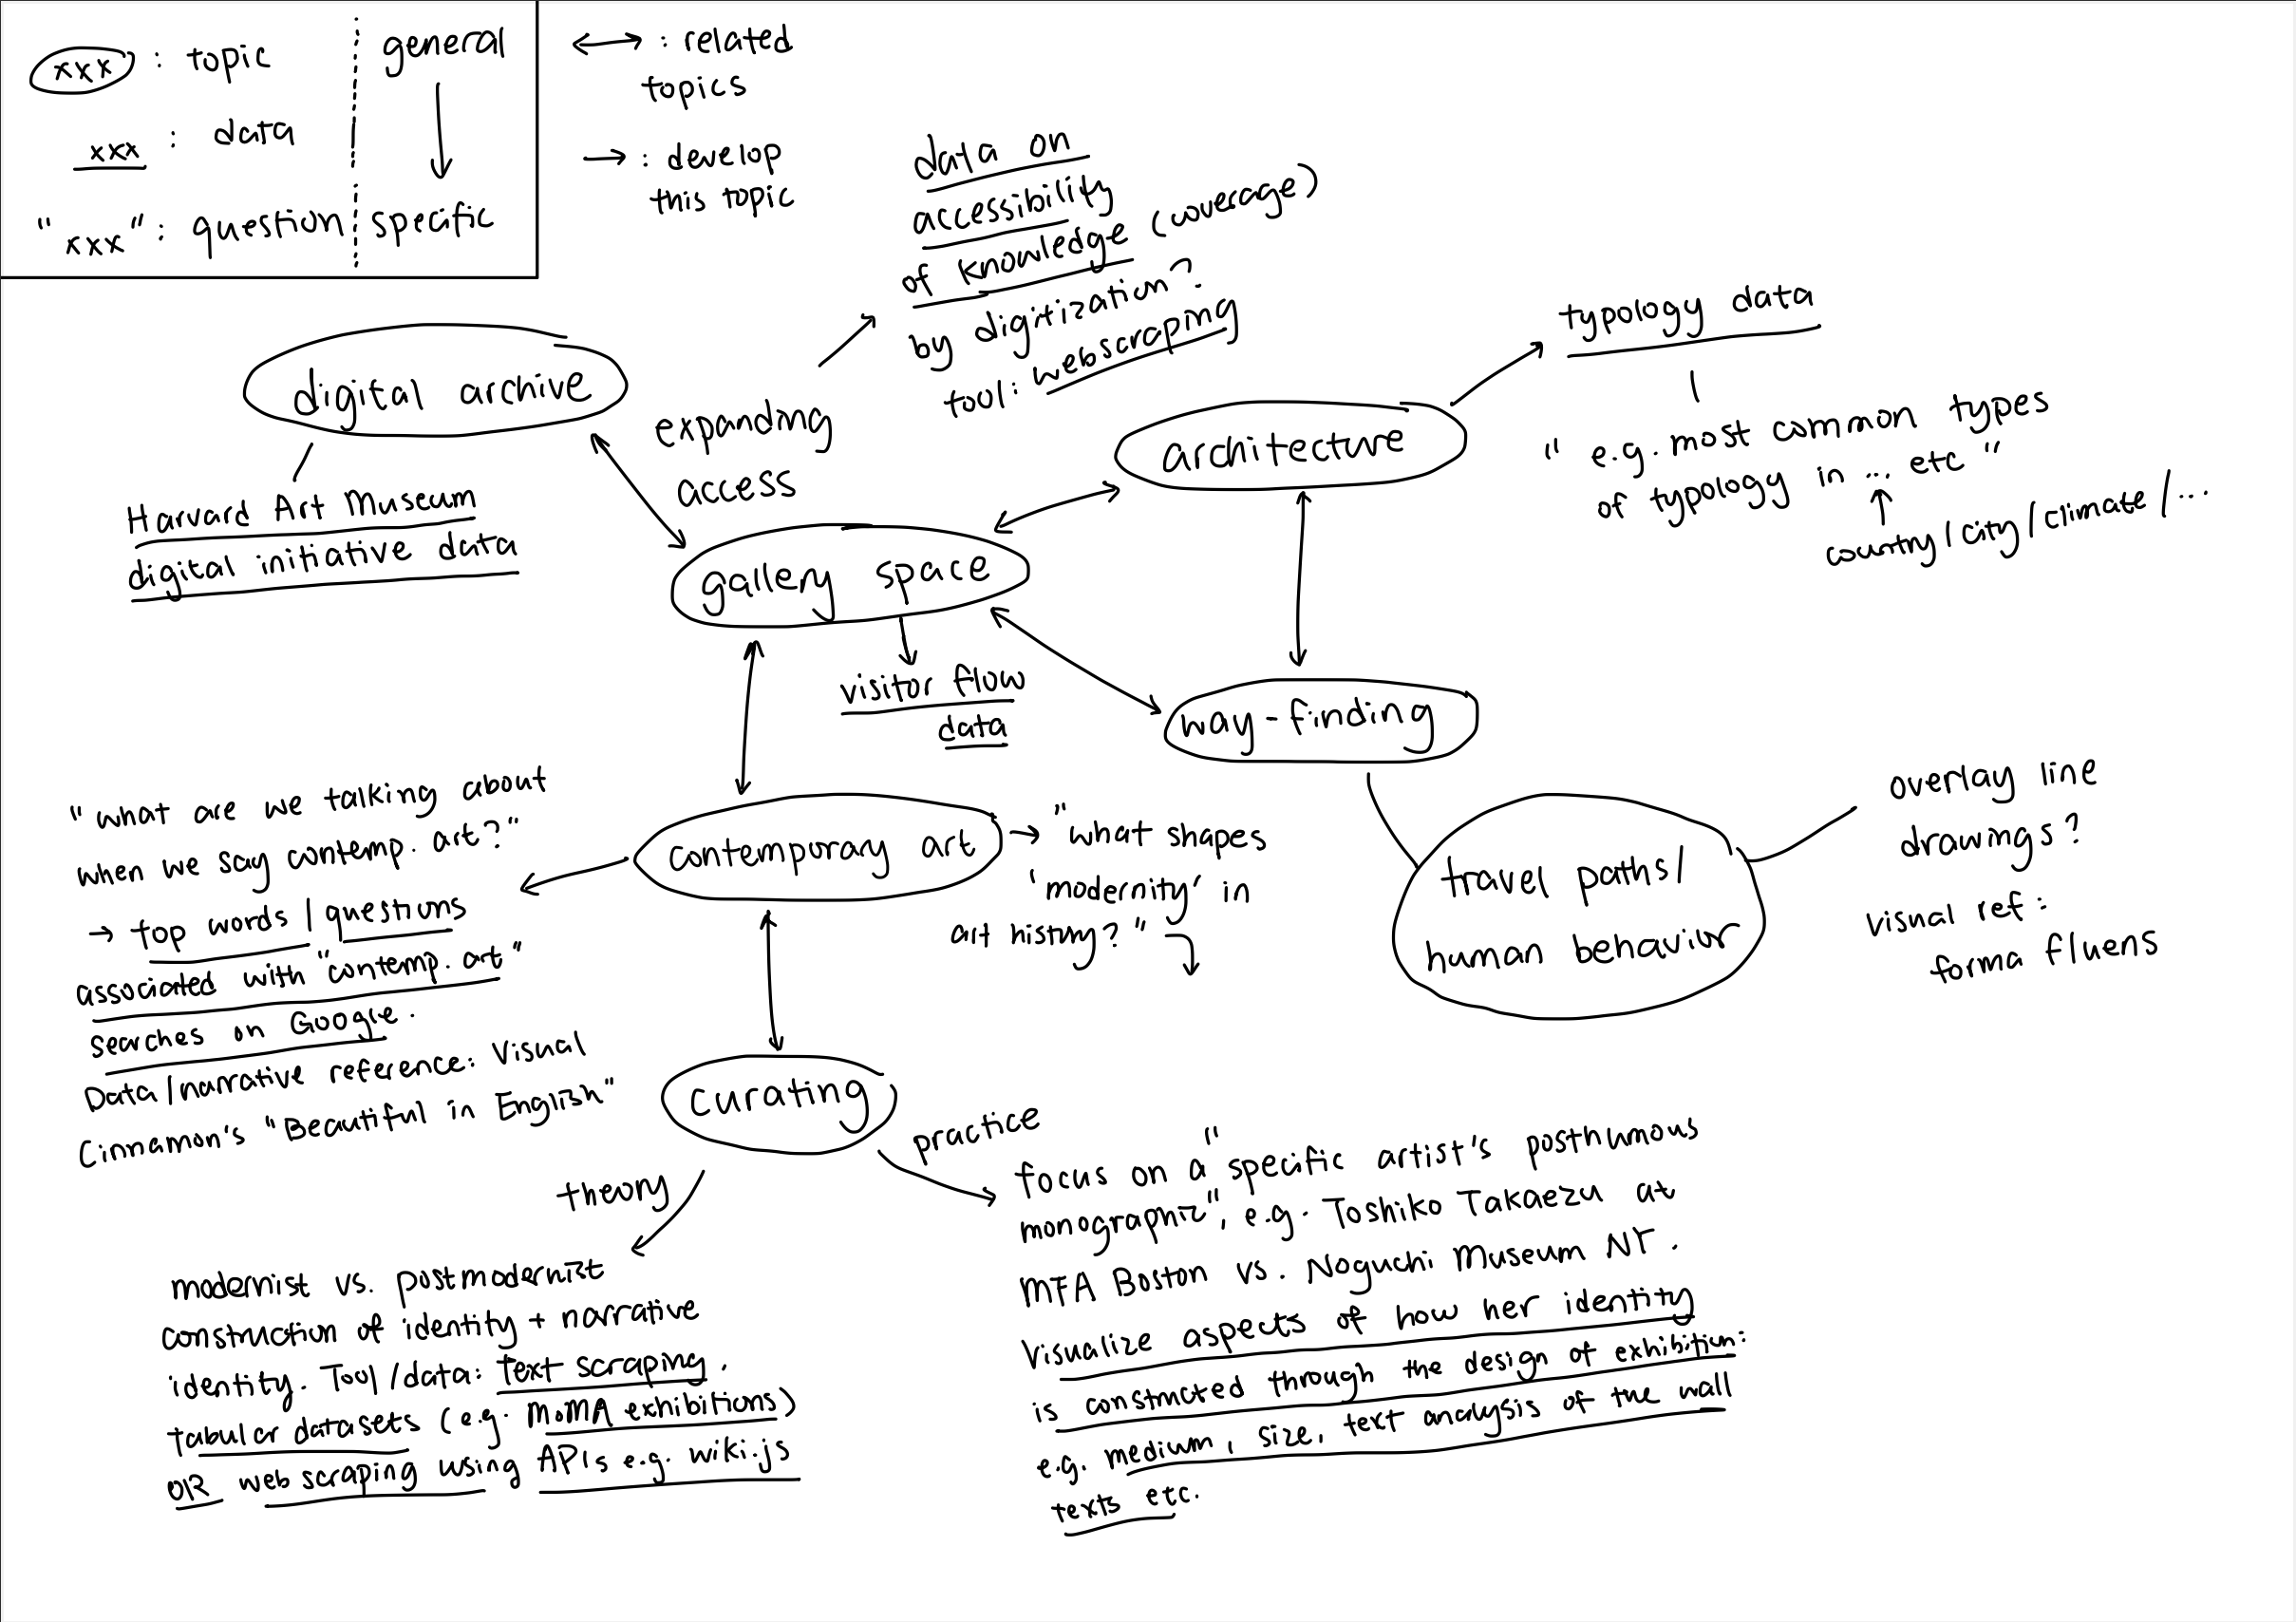 xxx : topic
xxx : data
"xxx" : question
general
specific
: related
topics
: develop
this topic
data on
accessibility
of knowledge (coverage)
by digitization?
tool: webscraping
digital archive
Harvard Art Museum
digital initiative data
expanding
access
gallery space
visitor flow
data
architecture
typology data
"e.g. most common types
of typology in ... etc"
country/city/climate/...
way-finding
travel paths/
human behavior
overlay line
drawings?
visual ref:
forma fluens
contemporary art
"what shapes
'modernity' in
art history?"
"what are we talking about
when we say contemp. art?"
→ top words/questions
associated with "contemp. art"
searches on Google.
Data/narrative reference: Visual
Cinnamon's "Beautiful in English"
curating
theory
modernist vs. postmodernist
construction of identity + narrative
identity. Tool/data: text scraping.
tabular datasets (e.g. MoMA exhibitions)
OR web scraping using APIs e.g. wiki.js
practice
focus on a "specific artist's posthumous
monographic", e.g. Toshiko Takaezu at
MFA Boston vs. Noguchi Museum NY.
Visualize aspects of how her identity
is constructed through the design of exhibition:
e.g. medium, size, text analysis of the wall
texts etc.